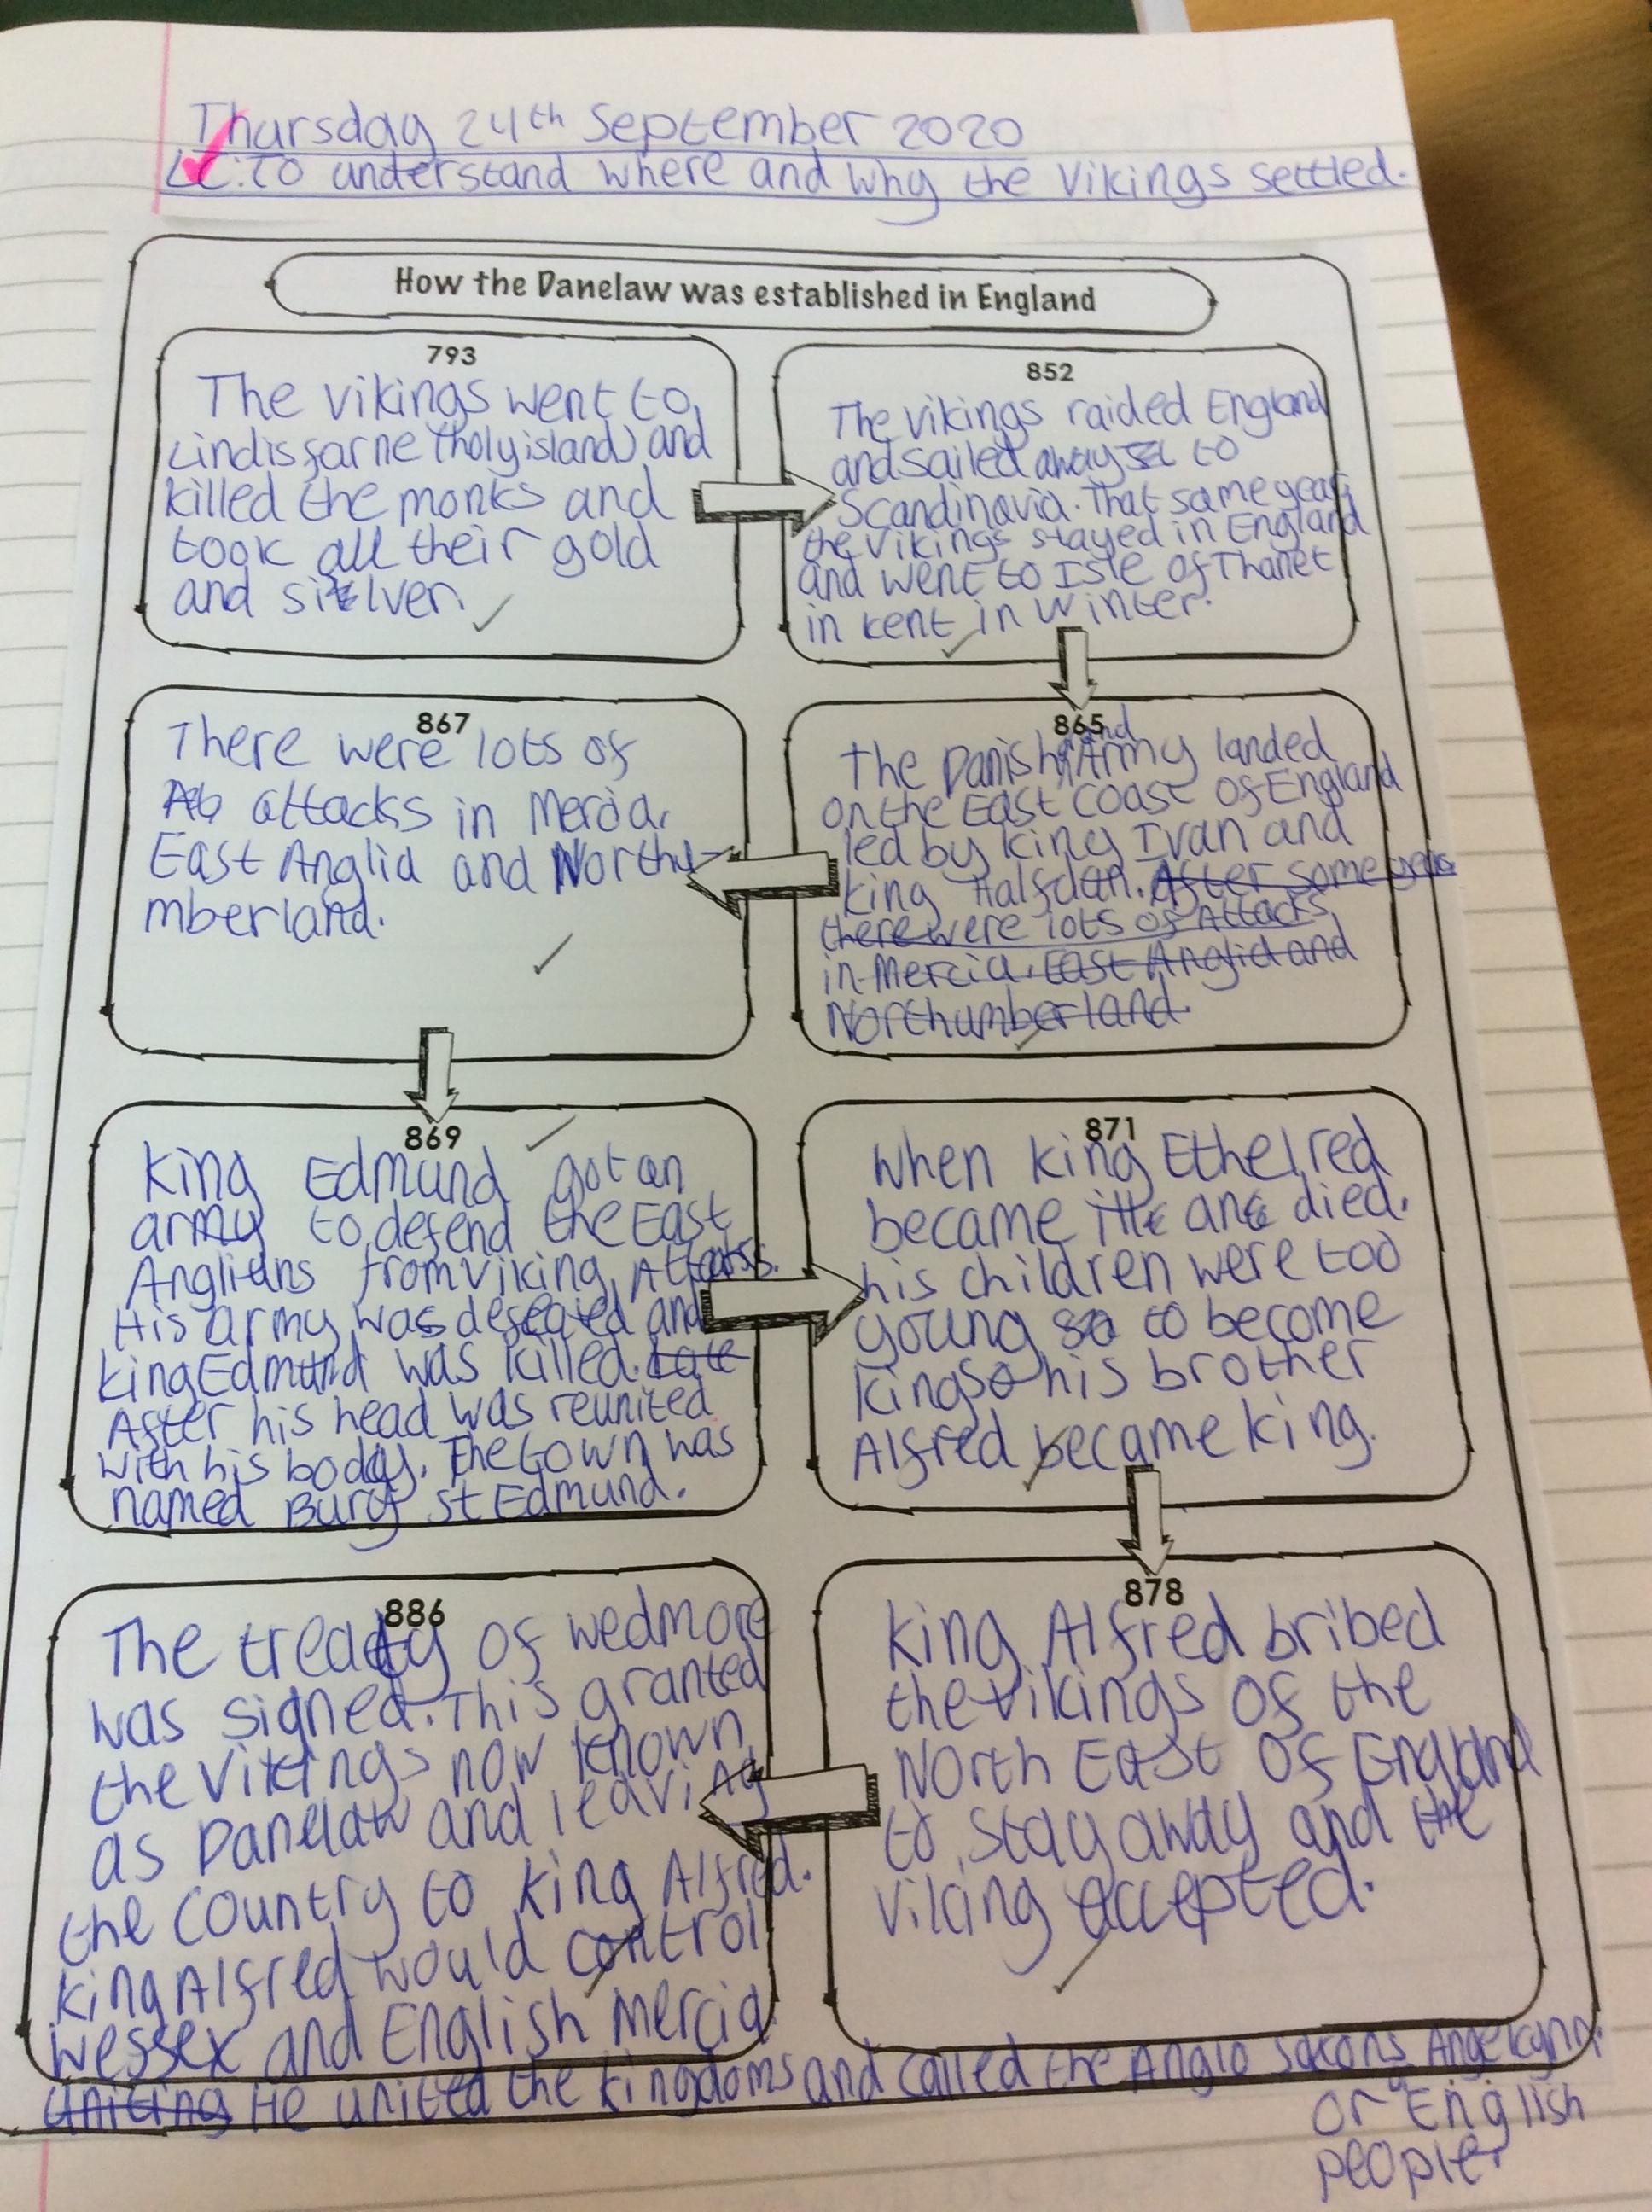 Thursday 24th September 2020
LC:To understand where and why the Vikings settled.
How the Danelaw was established in England
793
The vikings went to
Lindisfarne (holy island) and
killed the monks and
took all their gold
and silver.
852
The vikings raided England
and sailed away to
Scandinavia. That same year,
the vikings stayed in England
and went to Isle of Thanet
in kent in winter.
865
The Danish Army landed
on the East coast of England
led by king Ivan and
king Halfdan. After some years
there were lots of Attacks
in Mercia, East Anglia and
Northumberland.
867
There were lots of
attacks in Mercia,
East Anglia and Northu-
mberland.
869
King Edmund got an
army to defend the East
Anglians from viking Attacks.
His army was defeated and
king Edmund was killed. Late
After his head was reunited
with his body. The town was
named Bury St Edmund.
871
When king Ethelred
became ill and died.
his children were too
young to become
king so his brother
Alfred became king.
878
king Alfred bribed
the vikings of the
North East of England
to stay away and the
viking accepted.
886
The treaty of wedmore
was signed. This granted
the Vikings now known
as Danelaw and leaving
the country to king Alfred.
king Alfred would control
Wessex and English Mercia
Uniting He united the kingdoms and called the Anglo Saxons Angelcynn.
or English
people